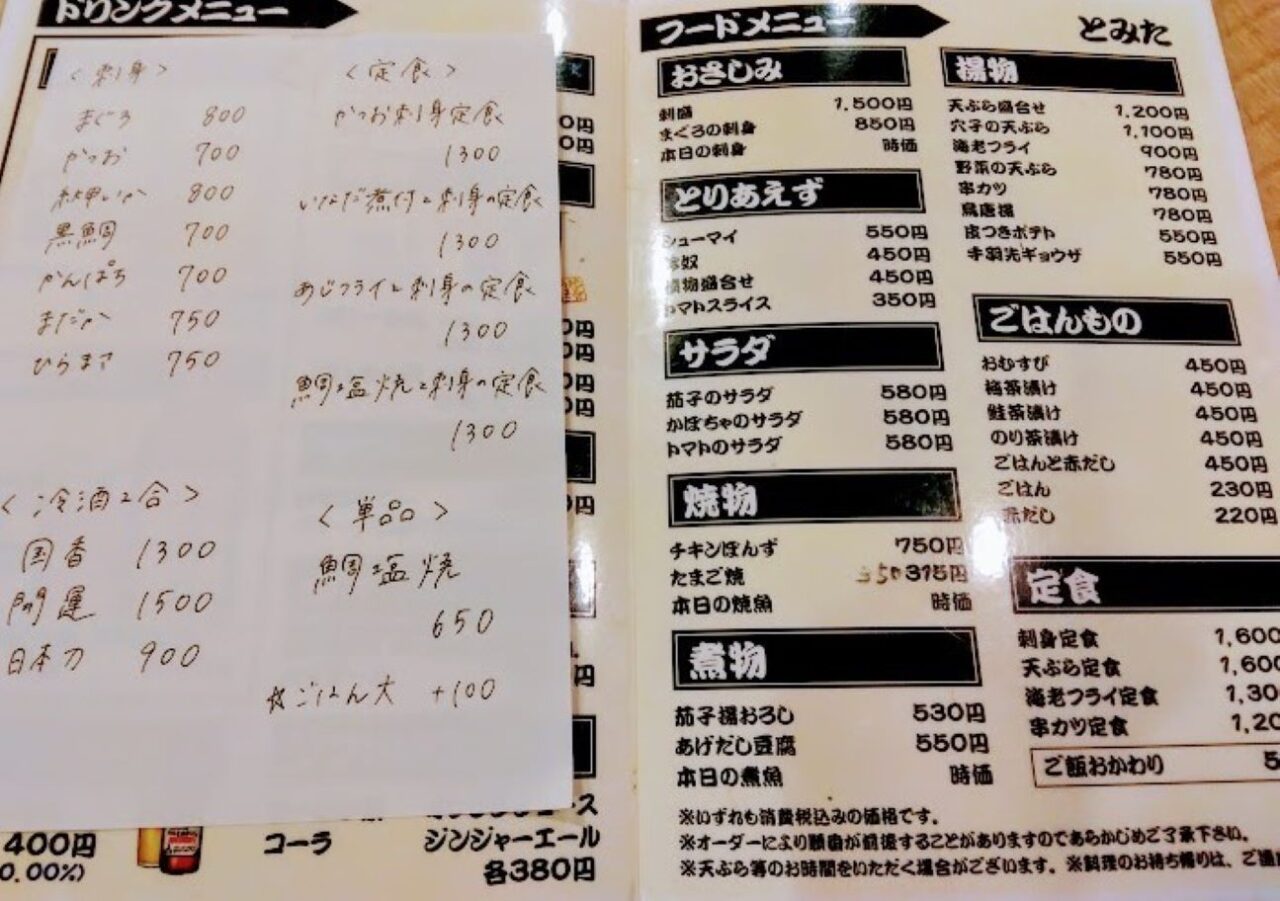 ドリンクメニュー
<刺身>
まぐろ 800
かつお 700
800
黒鯛 700
かんぱち 700
まだか 750
ひらまさ 750
<冷酒2合>
国香 1300
開運 1500
日本刀 900
<定食>
かつお刺身定食
1300
いなだ煮付と刺身の定食
1300
あじフライと刺身の定食
1300
鯛塩焼と刺身の定食
1300
<単品>
鯛塩焼
650
☆ごはん大 +100
400円
0.00%)
コーラ
ジンジャーエール
各380円
フードメニュー
とみた
おさしみ
刺盛 1,500円
まぐろの刺身 850円
本日の刺身 時価
とりあえず
シューマイ 550円
奴 450円
物盛合せ 450円
トマトスライス 350円
サラダ
茄子のサラダ 580円
かぼちゃのサラダ 580円
トマトのサラダ 580円
焼物
チキンぽんず 750円
たまご焼 350 315円
本日の焼魚 時価
煮物
茄子揚おろし 530円
あげだし豆腐 550円
本日の煮魚 時価
揚物
天ぷら盛合せ 1,200円
穴子の天ぷら 1,100円
海老フライ 900円
野菜の天ぷら 780円
串カツ 780円
鳥唐揚 780円
皮つきポテト 550円
手羽先ギョウザ 550円
ごはんもの
おむすび 450円
梅茶漬け 450円
鮭茶漬け 450円
のり茶漬け 450円
ごはんと赤だし 450円
ごはん 230円
赤だし 220円
定食
刺身定食 1,600
天ぷら定食 1,600
海老フライ定食 1,30
串カツ定食 1,20
ご飯おかわり 5
※いずれも消費税込みの価格です。
※オーダーにより順番が前後することがありますのであらかじめご了承下さい。
※天ぷら等のお時間をいただく場合がございます。※料理のお持ち帰りは、ご遠